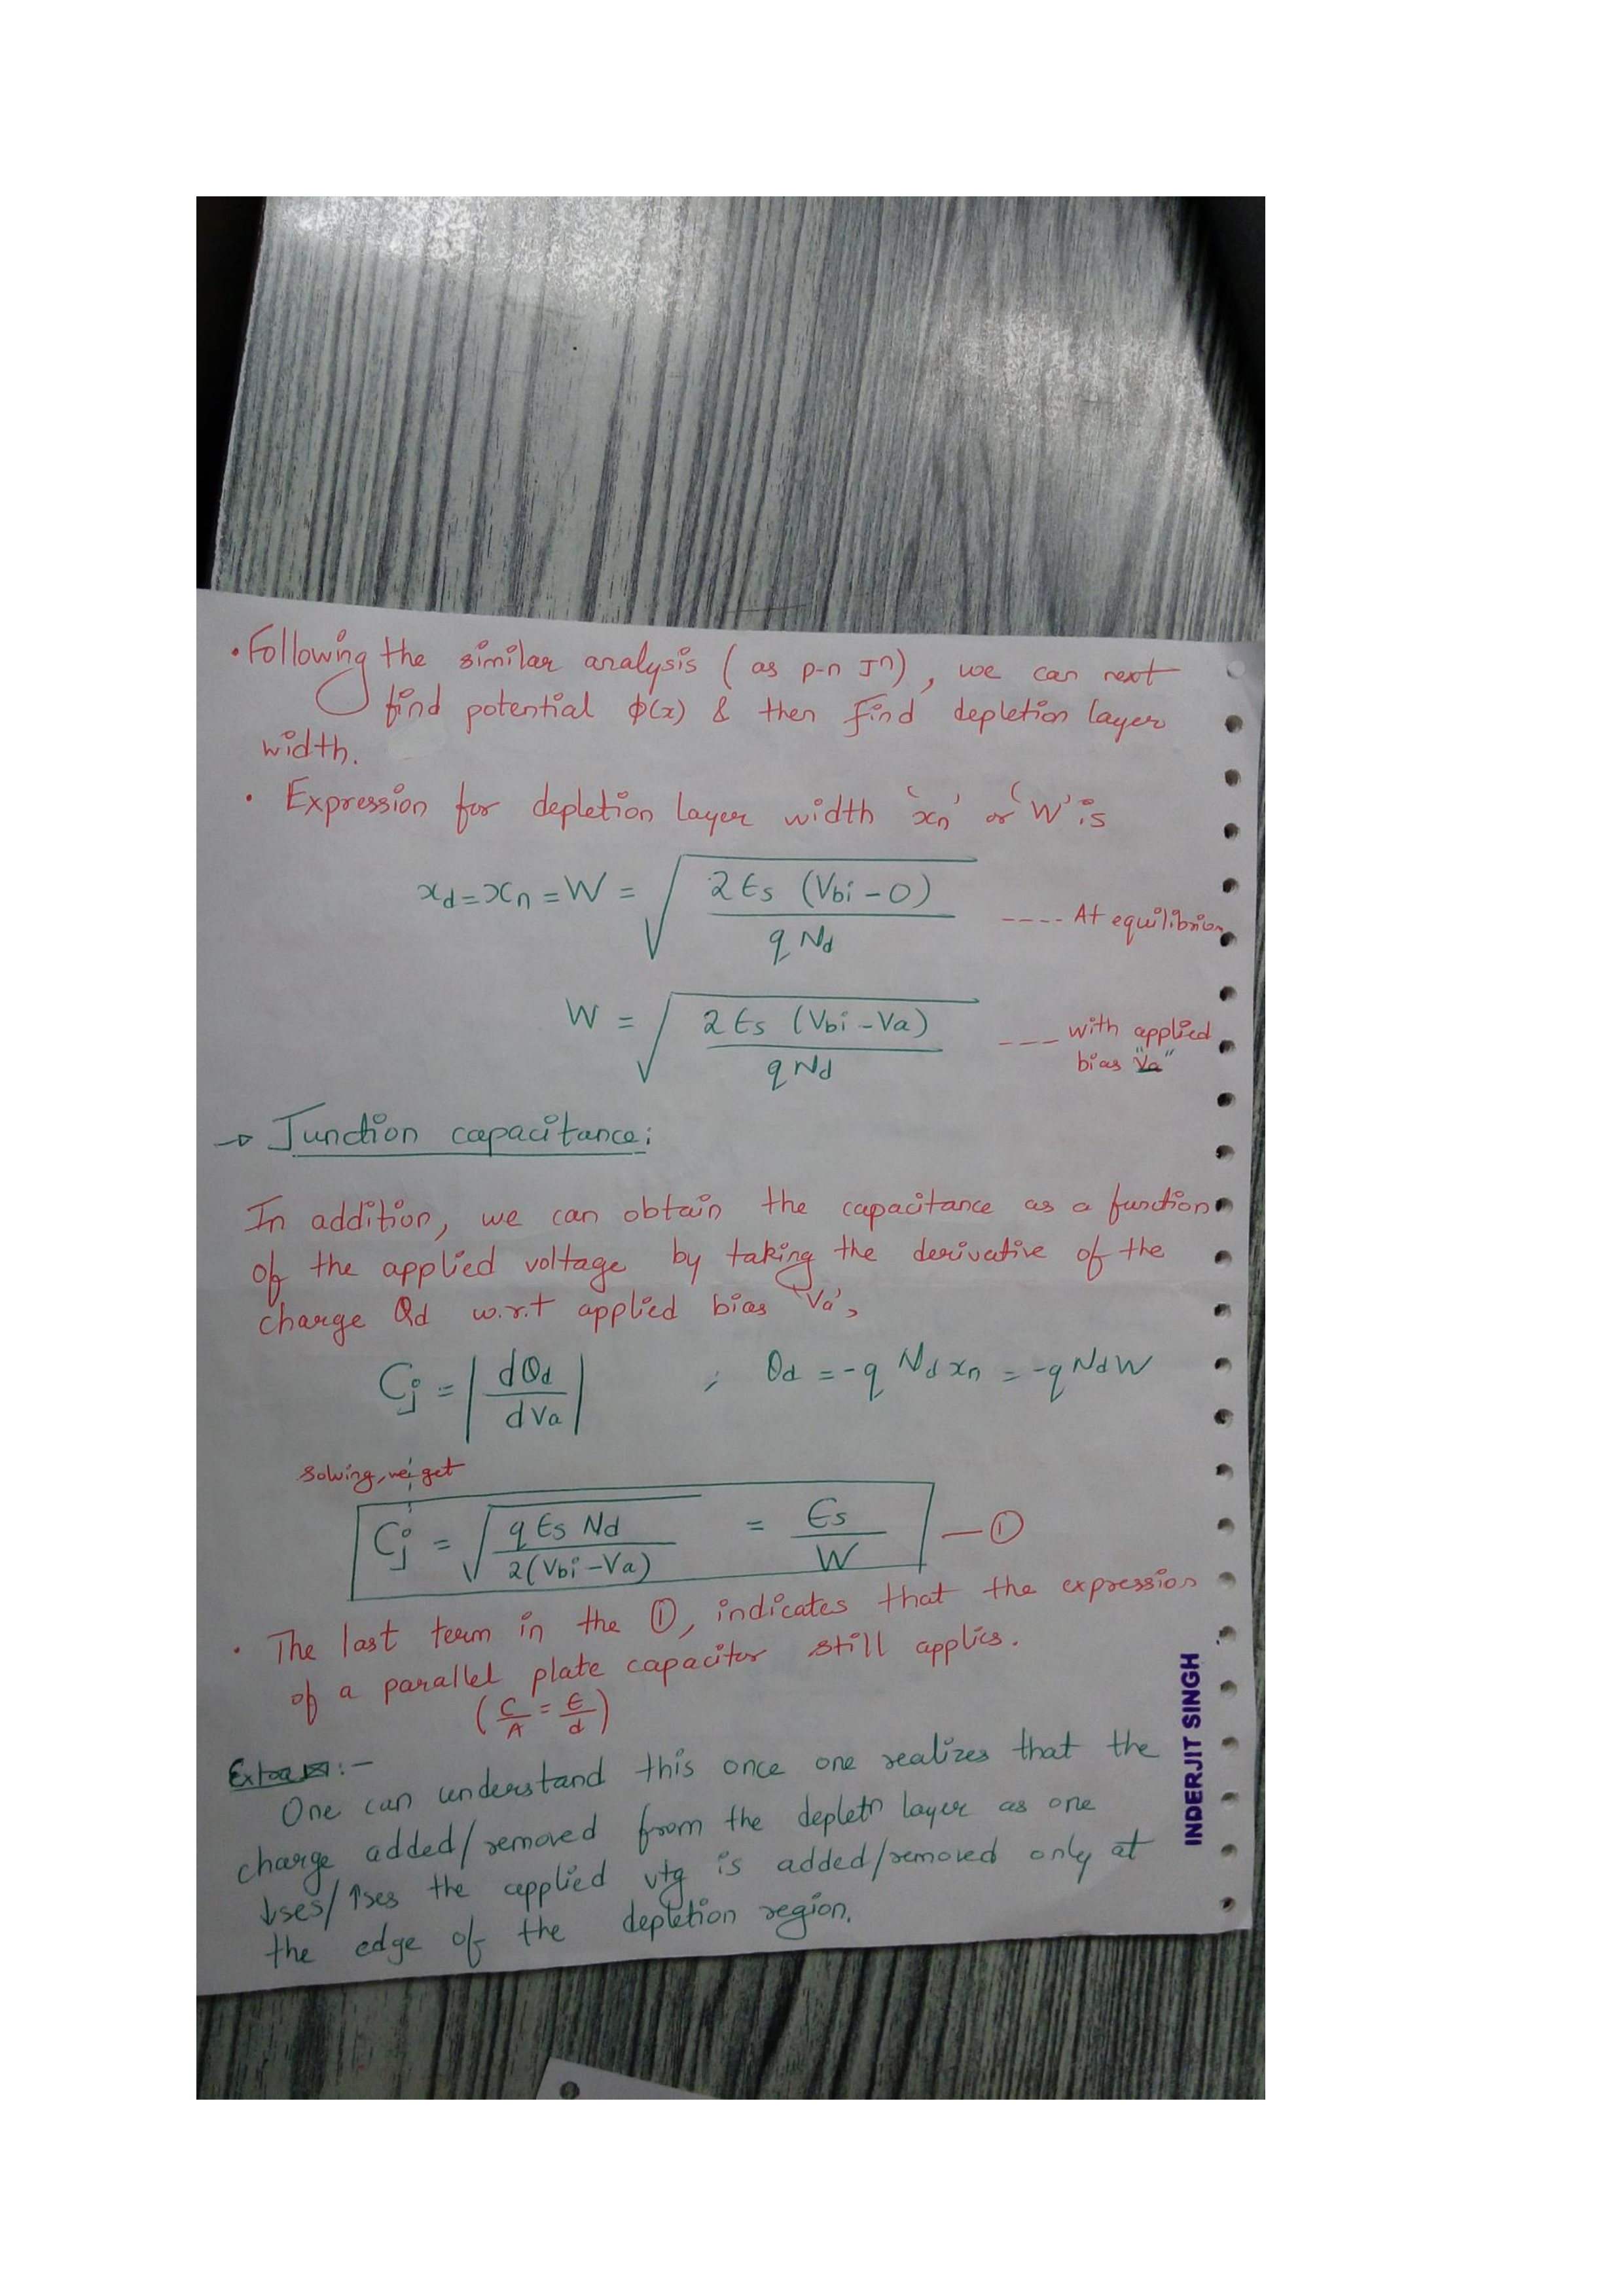 • Following the similar analysis (as p-n Jⁿ), we can next
find potential φ(x) & then find depletion layer
width.
• Expression for depletion layer width 'xn' or 'W' is
xd = xn = W = √(2 Es (Vbi - 0) / q Nd) ---- At equilibrium
W = √(2 Es (Vbi - Va) / q Nd) --- with applied
bias "Va"
→ Junction capacitance:
In addition, we can obtain the capacitance as a function
of the applied voltage by taking the derivative of the
charge Qd w.r.t applied bias 'Va',
Cj = |dQd / dVa| ; Qd = -q Nd xn = -q Nd W
solving, we get
Cj = √(q Es Nd / 2(Vbi - Va)) = Es / W — ①
• The last term in the ①, indicates that the expression
of a parallel plate capacitor still applies.
(C/A = E/d)
Extra :-
One can understand this once one realizes that the
charge added/removed from the depletn layer as one
↓ses/↑ses the applied vtg is added/removed only at
the edge of the depletion region.
INDERJIT SINGH